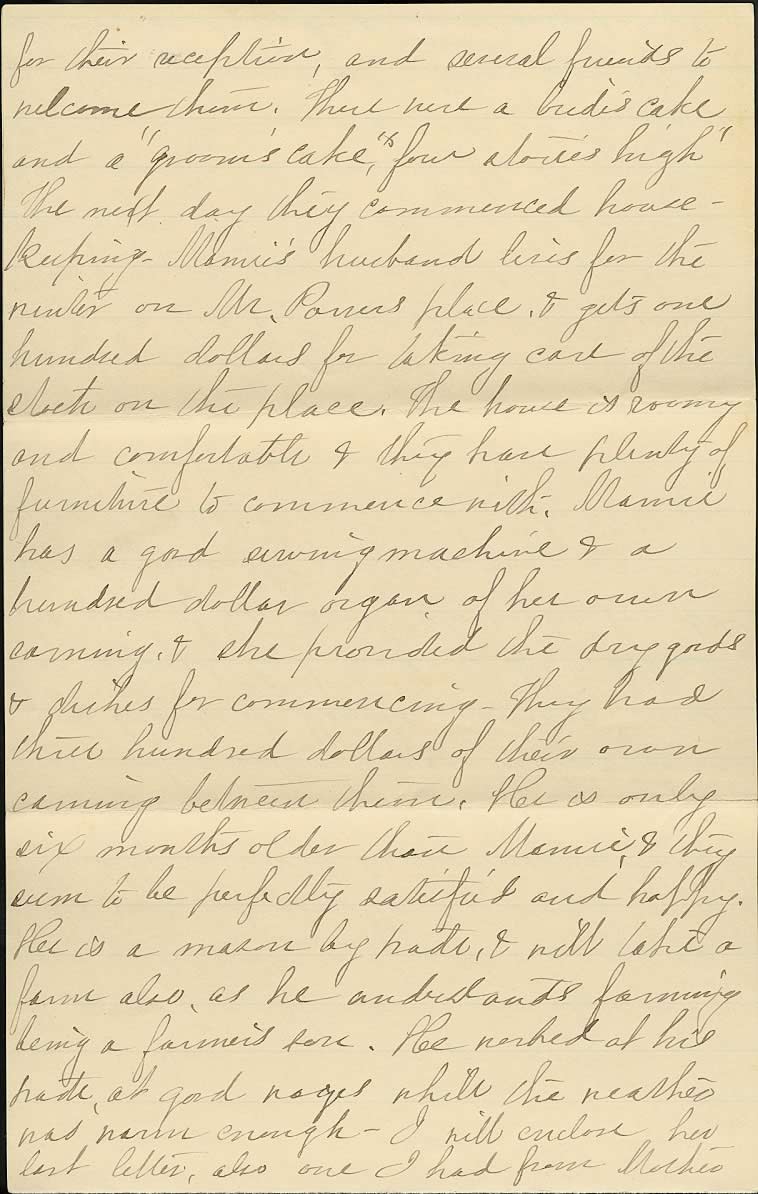 for their reception, and several friends to
welcome them. There were a bride's cake
and a "groom's cake," "four stories high"
The next day they commenced house-
keeping - Mamie's husband lives for the
winter on Mr. Powers place, & gets one
hundred dollars for taking care of the
stock on the place. The house is roomy
and comfortable & they have plenty of
furniture to commence with. Mamie
has a good sewing machine & a
hundred dollar organ of her own
earning, & she provided the dry goods
& dishes for commencing - They had
three hundred dollars of their own
earning between them. He is only
six months older than Mamie, & they
seem to be perfectly satisfied and happy.
He is a mason by trade, & will take a
farm also, as he understands farming
being a farmer's son. He worked at his
trade, at good wages while the weather
was warm enough - I will enclose her
last letter, also one I had from Mother